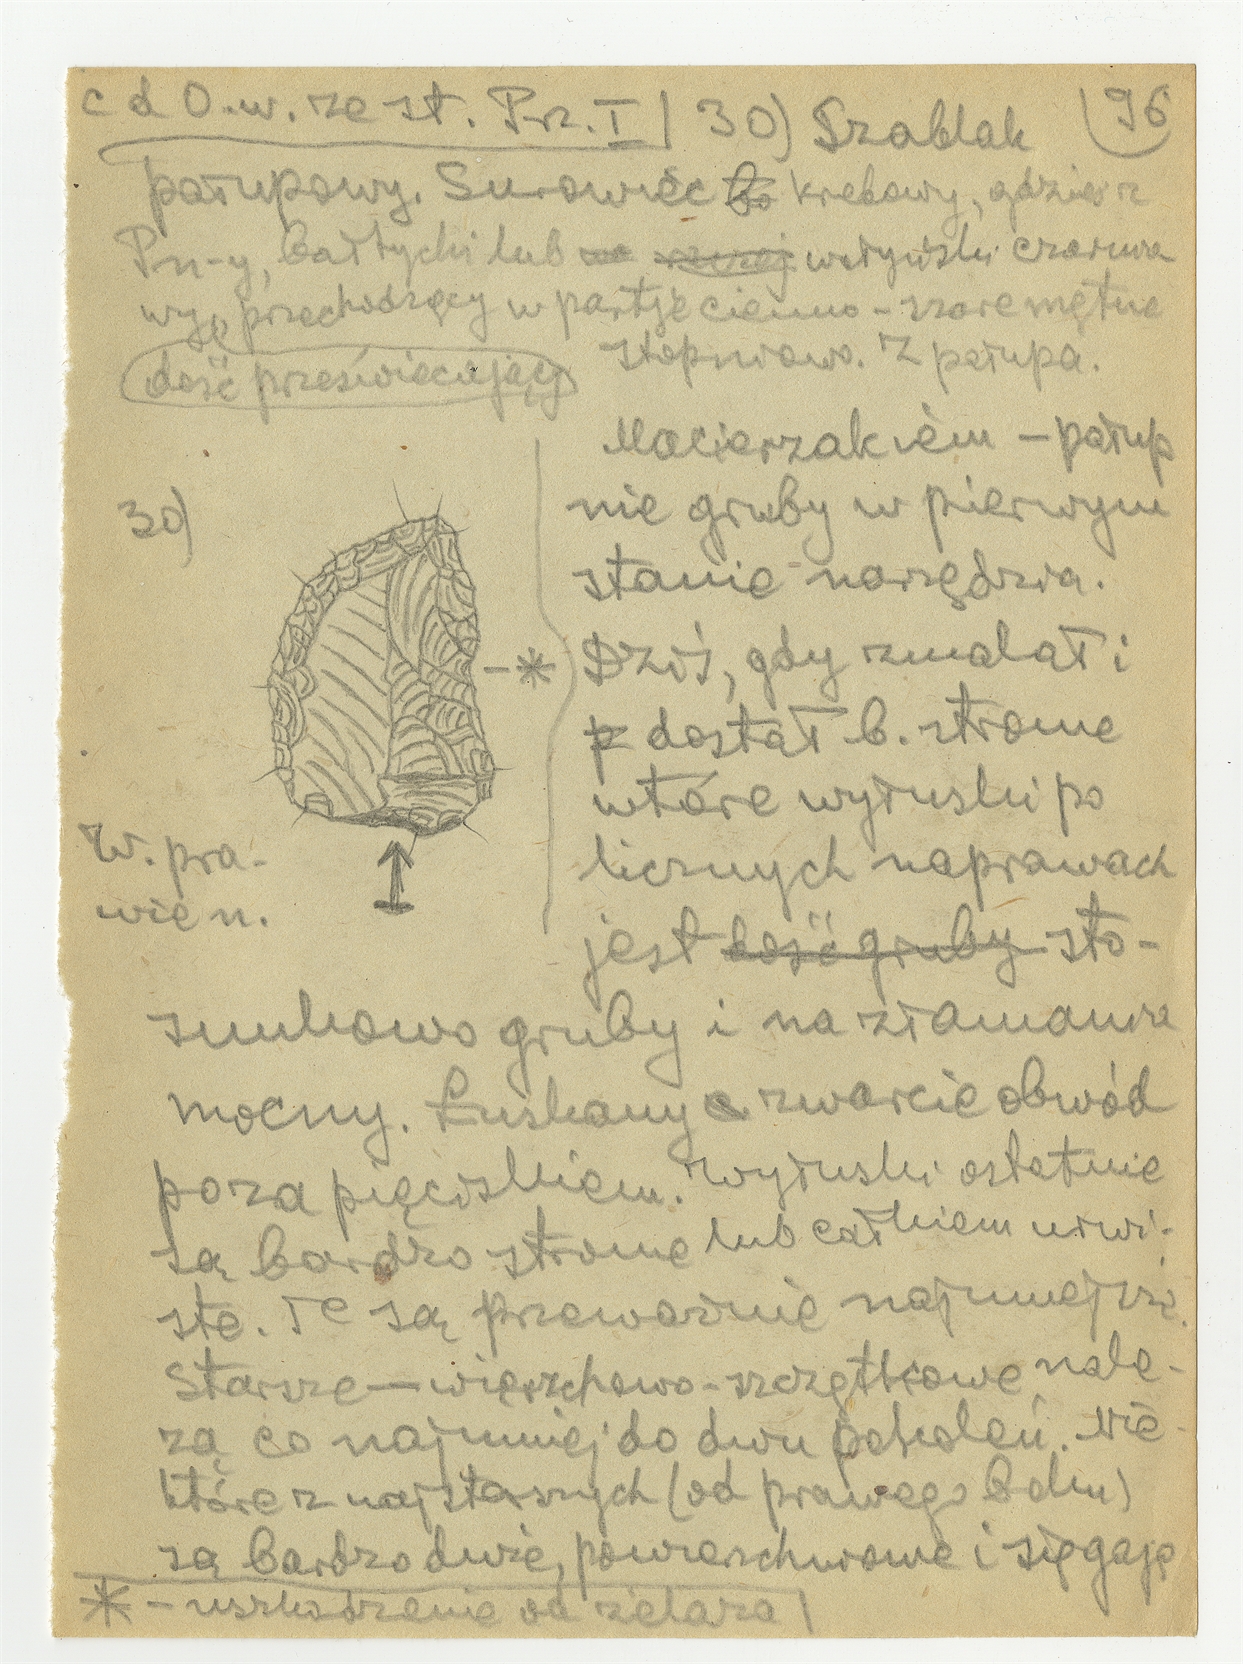 c d O.w. ze st. Prz. I | 30) Szablak 96
patupowy. Surowiec krebowy, gdzieś z
Pn-y, bałtycki lub wołyński czarnia
wy, przechodzący w partje ciemno-szare mętne
stopniowo. Z patupa.
dość przeświecający
Macierzakiem – patup
30)
nie gruby w pierwym
stanie narzędzia.
Dziś, gdy zmalał i
-*
dostał b. strome
wtóre wyłuski po
licznych naprawach
W. pra-
wie n.
jest dość gruby sto-
sunkowo gruby i na złamania
mocny. Łuskany zwarcie obwód
poza pięciskiem. Wyłuski ostatnie
są bardzo strome lub całkiem urwi-
ste. Te są przeważnie najmniejsze.
Starsze – wierzchowo-szczątkowe nale-
żą co najmniej do dwu pokoleń. Nie-
które z najstarszych (od prawego boku)
są bardzo duże, powierzchniowe i sięgają
* - uszkodzenie od żelaza |